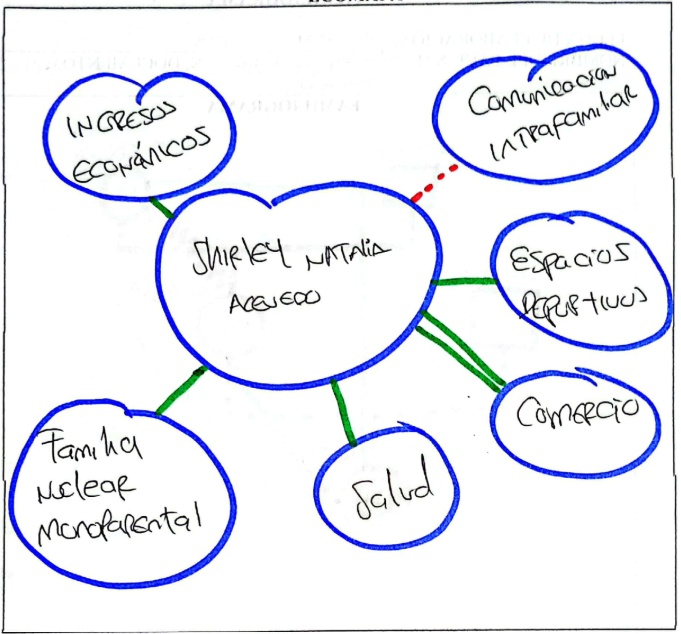 INGRESOS
ECONÓMICOS
Comunicacion
INTRAFamiliar
SHIRLEY NATALIA
ACEVEDO
Espacios
DEPORTIVOS
COMERCIO
Familia
NUCLEAR
MONOPARENTAL
Salud